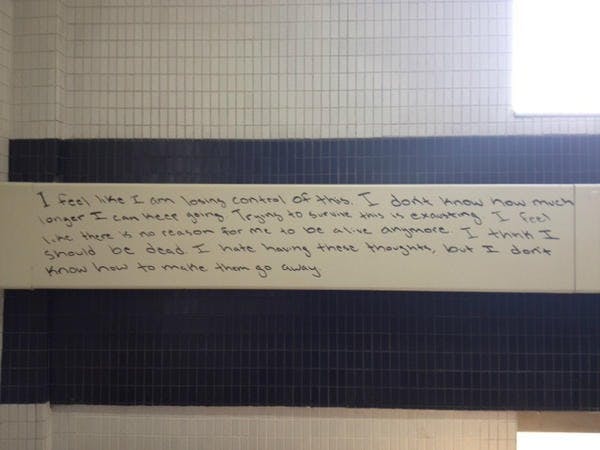 I feel like I am losing control of this. I don't know how much
longer I can keep going Trying to survive this is exausting I feel
like there is no reason for me to be alive anymore I think I
should be dead. I hate having these thoughts, but I don't
know how to make them go away.